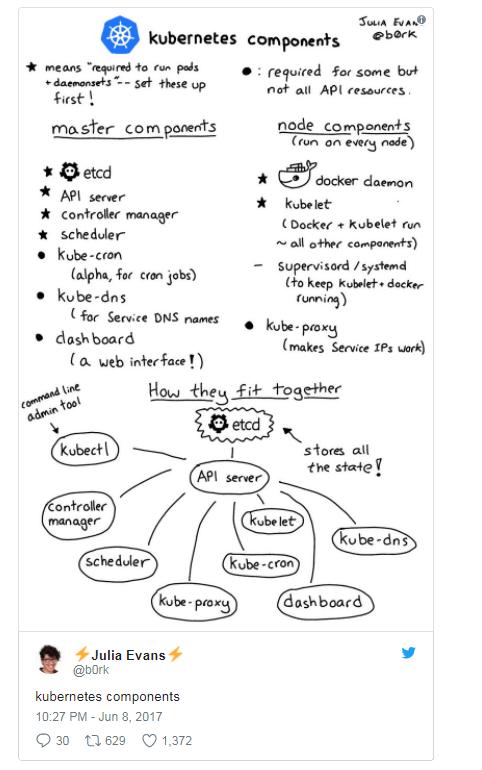 JULIA EVANS
@b0rk
kubernetes components
★ means "required to run pods
+ daemonsets" -- set these up
first!
● : required for some but
not all API resources.
master components
★ etcd
★ API server
★ controller manager
★ scheduler
● kube-cron
(alpha, for cron jobs)
● kube-dns
(for Service DNS names
● dashboard
(a web interface!)
node components
(run on every node)
★ docker daemon
★ kubelet
(Docker + kubelet run
~ all other components)
– supervisord / systemd
(to keep kubelet + docker
running)
● kube-proxy
(makes Service IPs work)
How they fit together
command line
admin tool
etcd
stores all
the state!
kubectl
API server
controller
manager
kubelet
kube-dns
scheduler
kube-cron
kube-proxy
dashboard
⚡Julia Evans⚡
@b0rk
kubernetes components
10:27 PM - Jun 8, 2017
30 629 1,372